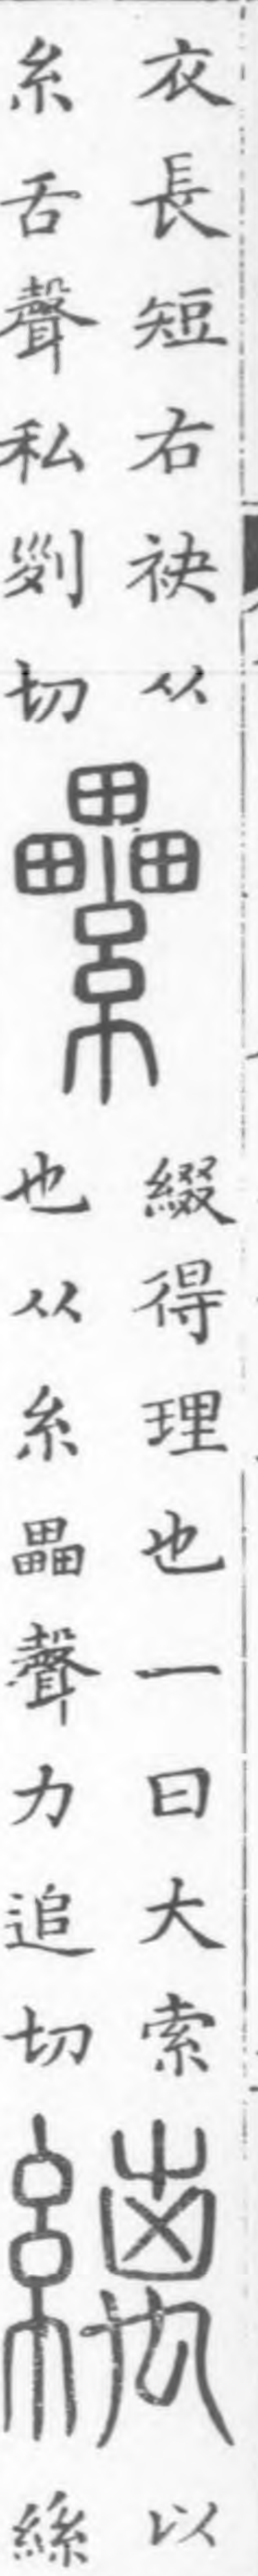 衣長短右袂从
糸舌聲私列切
纍
綴得理也一曰大索
也从糸畾聲力追切
縭
以
絲